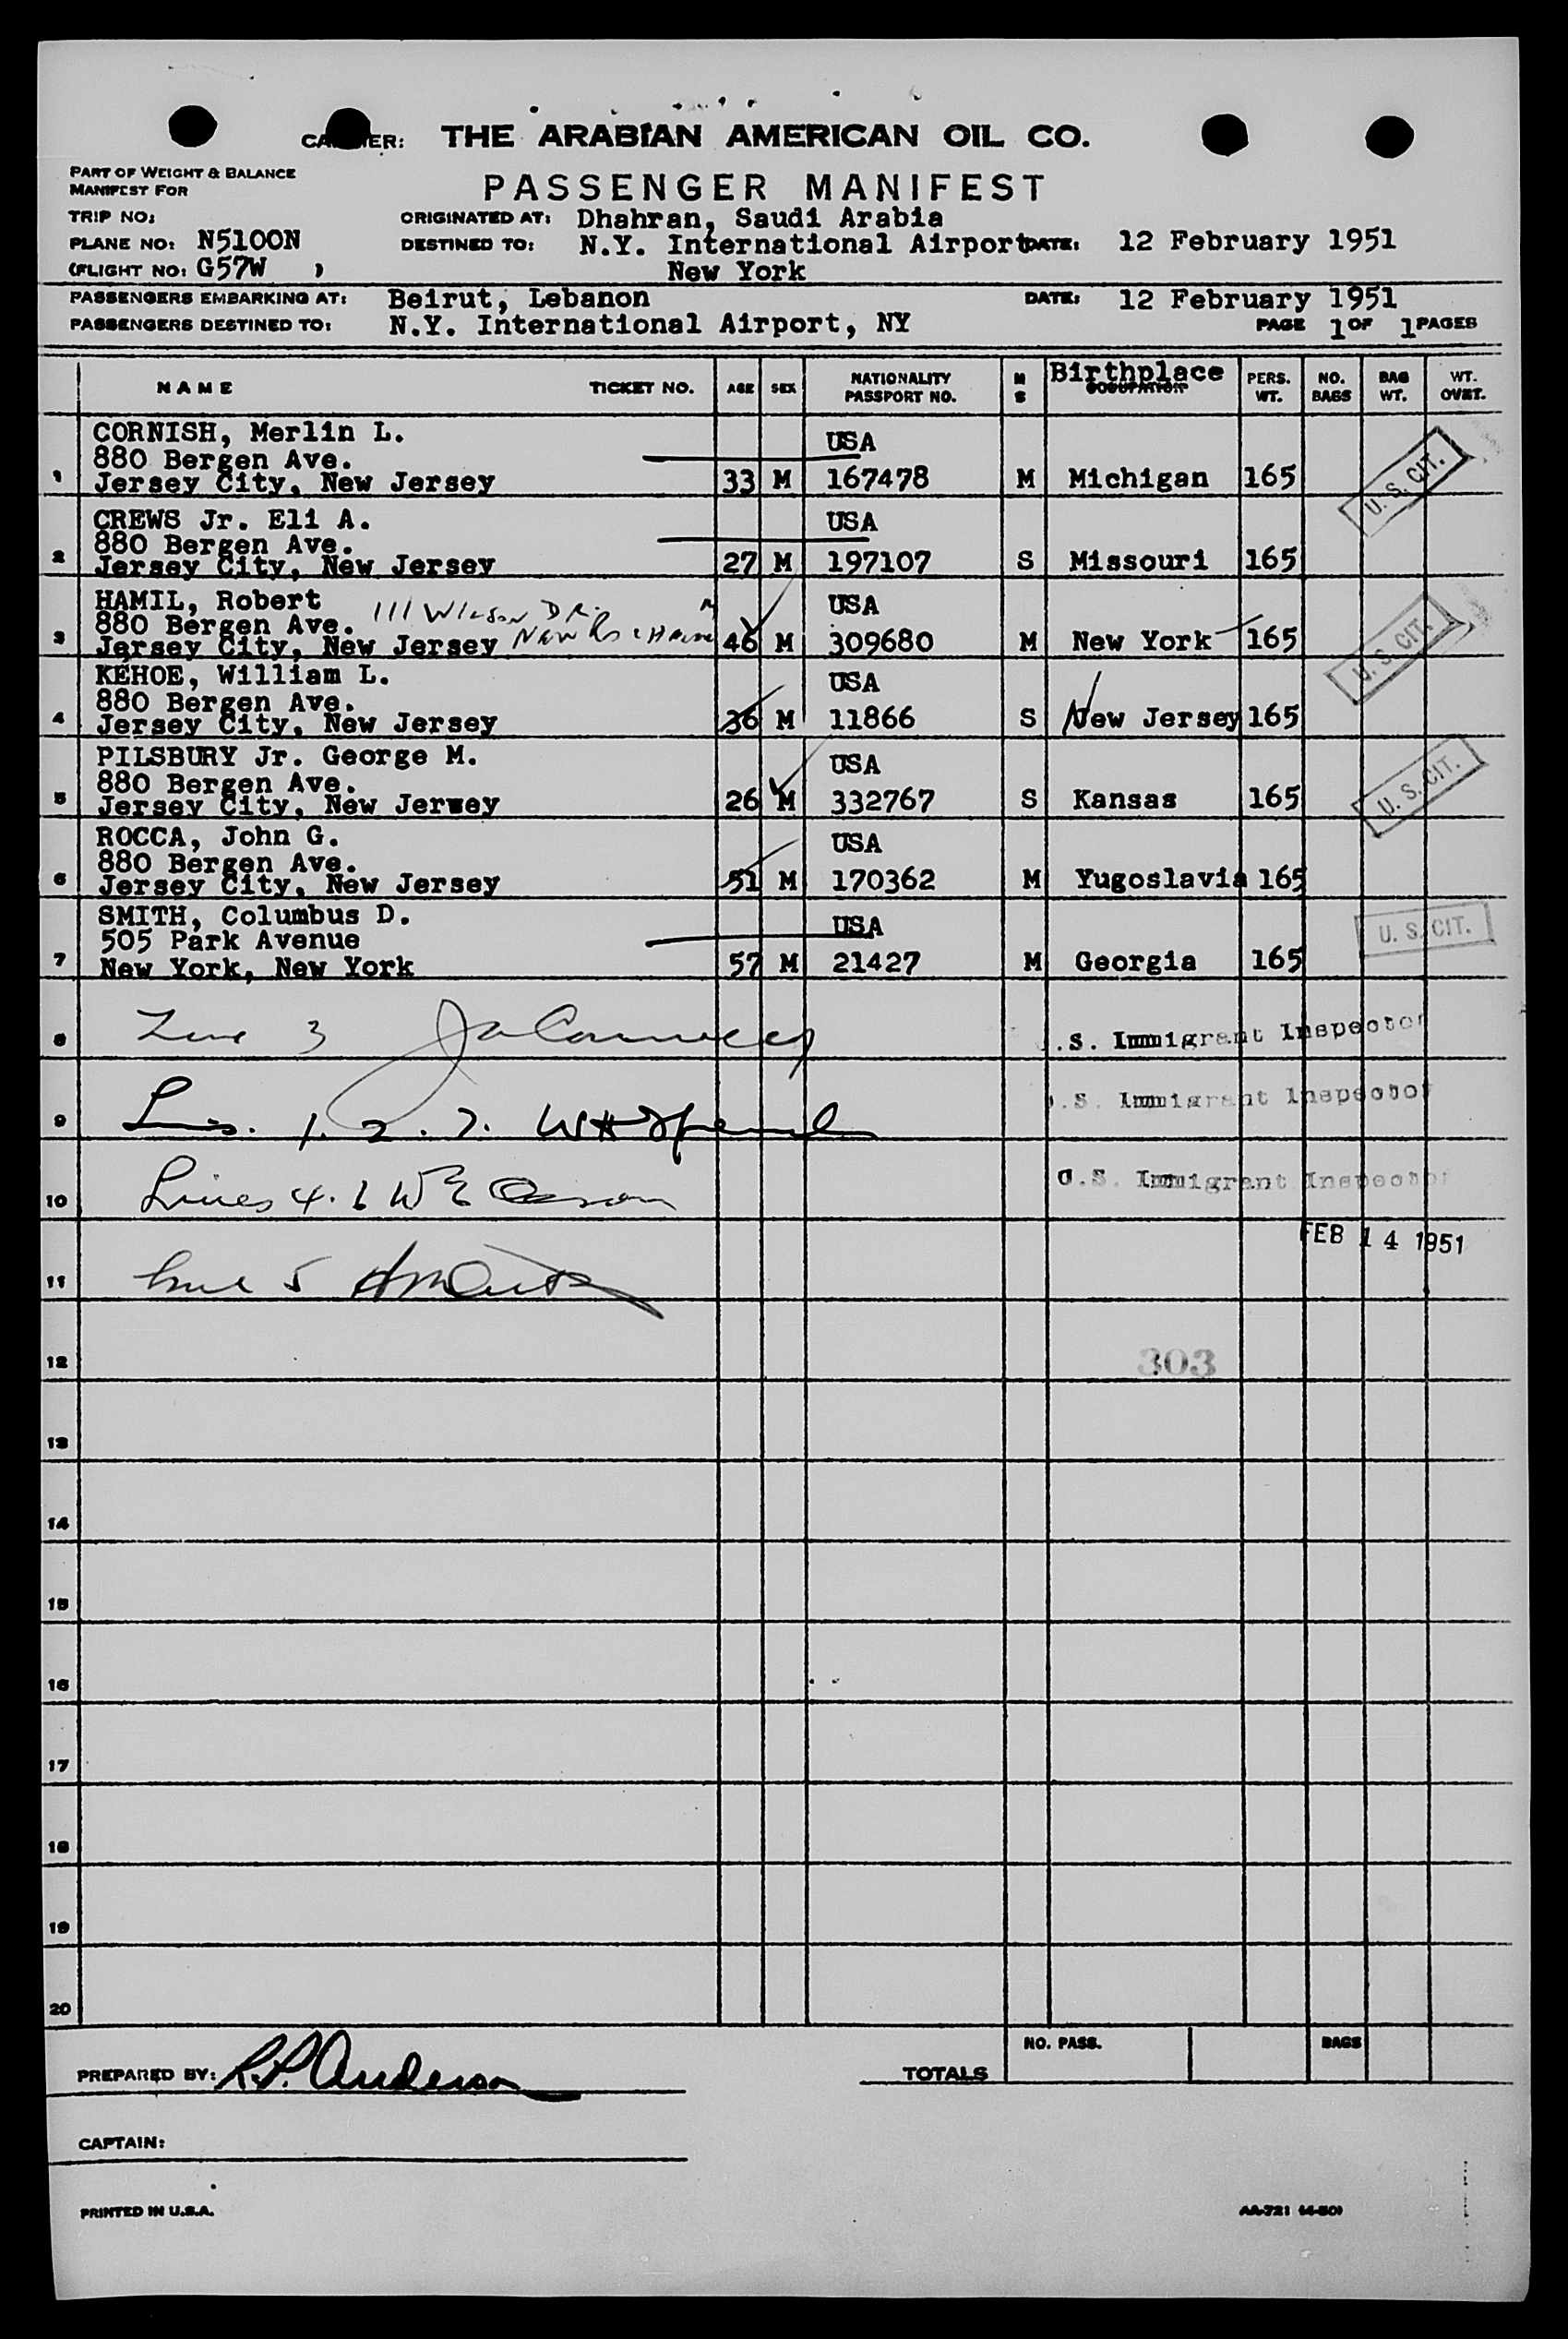 CARRIER: THE ARABIAN AMERICAN OIL CO.
PART OF WEIGHT & BALANCE
MANIFEST FOR
PASSENGER MANIFEST
TRIP NO:
ORIGINATED AT: Dhahran, Saudi Arabia
PLANE NO: N5100N
DESTINED TO: N.Y. International Airport DATE: 12 February 1951
(FLIGHT NO: G57W )
New York
PASSENGERS EMBARKING AT: Beirut, Lebanon DATE: 12 February 1951
PASSENGERS DESTINED TO: N.Y. International Airport, NY PAGE 1 OF 1 PAGES
NAME TICKET NO. AGE SEX NATIONALITY PASSPORT NO. M S Birthplace OCCUPATION PERS. WT. NO. BAGS BAG WT. WT. OVET.
CORNISH, Merlin L. USA
880 Bergen Ave.
1 Jersey City, New Jersey 33 M 167478 M Michigan 165 U. S. CIT.
CREWS Jr. Eli A. USA
880 Bergen Ave.
2 Jersey City, New Jersey 27 M 197107 S Missouri 165
HAMIL, Robert USA
880 Bergen Ave. 111 Wilson Dr
3 Jersey City, New Jersey New Rochelle 46 M 309680 M New York 165 U. S. CIT.
KEHOE, William L. USA
880 Bergen Ave.
4 Jersey City, New Jersey 36 M 11866 S New Jersey 165
PILSBURY Jr. George M. USA
880 Bergen Ave.
5 Jersey City, New Jerwey 26 M 332767 S Kansas 165 U. S. CIT.
ROCCA, John G. USA
880 Bergen Ave.
6 Jersey City, New Jersey 51 M 170362 M Yugoslavia 165
SMITH, Columbus D. USA
505 Park Avenue
7 New York, New York 57 M 21427 M Georgia 165 U. S. CIT.
8 Line 3 .S. Immigrant Inspector
9 Lines. 1. 2. 7. .S. Immigrant Inspector
10 Lines 4. 6 U.S. Immigrant Inspector
FEB 14 1951
11 Line 5
12 303
13
14
15
16
17
18
19
20
NO. PASS. BAGS
PREPARED BY: R.P. Anderson TOTALS
CAPTAIN:
PRINTED IN U.S.A. AA-721 (4-50)